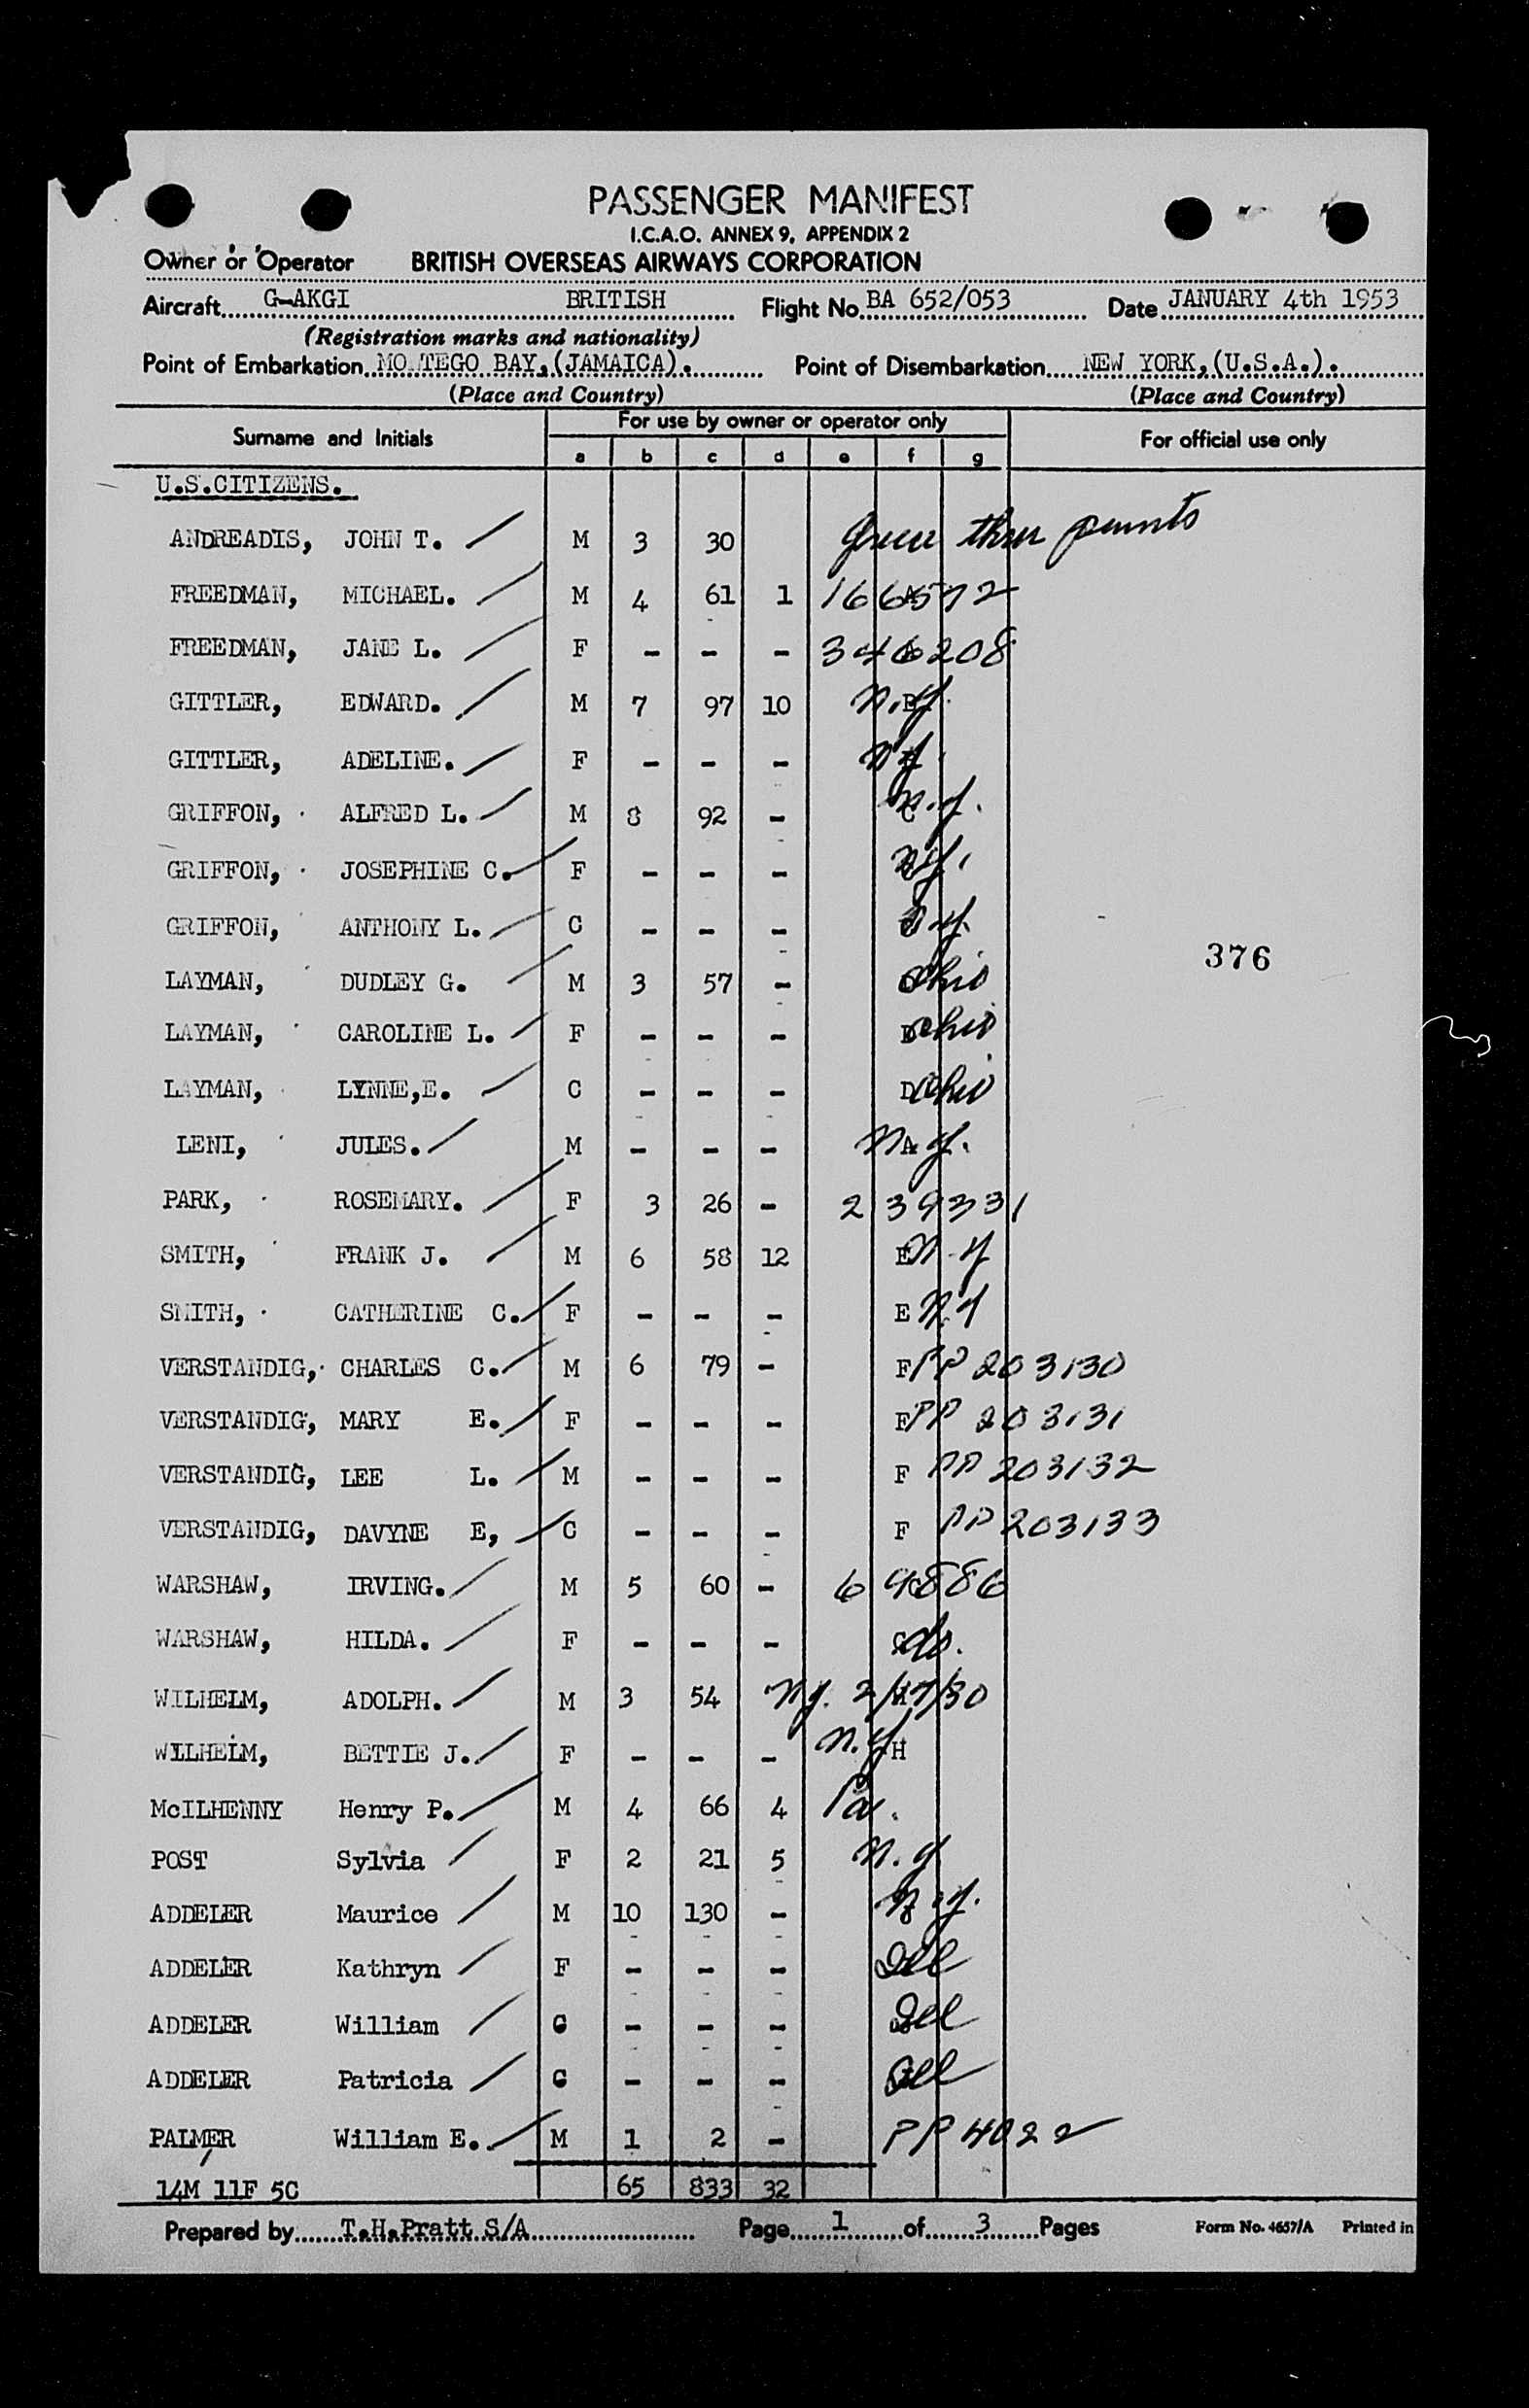 PASSENGER MANIFEST
I.C.A.O. ANNEX 9, APPENDIX 2
Owner or Operator BRITISH OVERSEAS AIRWAYS CORPORATION
Aircraft G-AKGI BRITISH Flight No. BA 652/053 Date JANUARY 4th 1953
(Registration marks and nationality)
Point of Embarkation MO TEGO BAY,(JAMAICA). Point of Disembarkation NEW YORK,(U.S.A.).
(Place and Country) (Place and Country)
Surname and Initials For use by owner or operator only For official use only
a b c d e f g
U.S.CITIZENS.
ANDREADIS, JOHN T. M 3 30 thru
FREEDMAN, MICHAEL. M 4 61 1 166572
FREEDMAN, JANE L. F - - - 346208
GITTLER, EDWARD. M 7 97 10 N.Y.
GITTLER, ADELINE. F - - - N.Y.
GRIFFON, ALFRED L. M 8 92 - N.Y.
GRIFFON, JOSEPHINE C. F - - - N.Y.
GRIFFON, ANTHONY L. C - - - N.Y.
376
LAYMAN, DUDLEY G. M 3 57 - Ohio
LAYMAN, CAROLINE L. F - - - D Ohio
LAYMAN, LYNNE,E. C - - - D Ohio
LENI, JULES. M - - - A N.Y.
PARK, ROSEMARY. F 3 26 - 239331
SMITH, FRANK J. M 6 58 12 E N.Y
SMITH, CATHERINE C. F - - - E N.Y
VERSTANDIG, CHARLES C. M 6 79 - F PP 203130
VERSTANDIG, MARY E. F - - - F PP 203131
VERSTANDIG, LEE L. M - - - F PP 203132
VERSTANDIG, DAVYNE E, C - - - F PP 203133
WARSHAW, IRVING. M 5 60 - 64886
WARSHAW, HILDA. F - - - do.
WILHELM, ADOLPH. M 3 54 N.Y. H
WILHELM, BETTIE J. F - - - N.Y H
McILHENNY Henry P. M 4 66 4 Pa.
POST Sylvia F 2 21 5 N.Y
ADDELER Maurice M 10 130 - N.Y.
ADDELER Kathryn F - - -
ADDELER William C - - -
ADDELER Patricia C - - -
PALMER William E. M 1 2 - PP 4022
14M 11F 5C 65 833 32
Prepared by T.H.Pratt S/A Page 1 of 3 Pages Form No. 4657/A Printed in